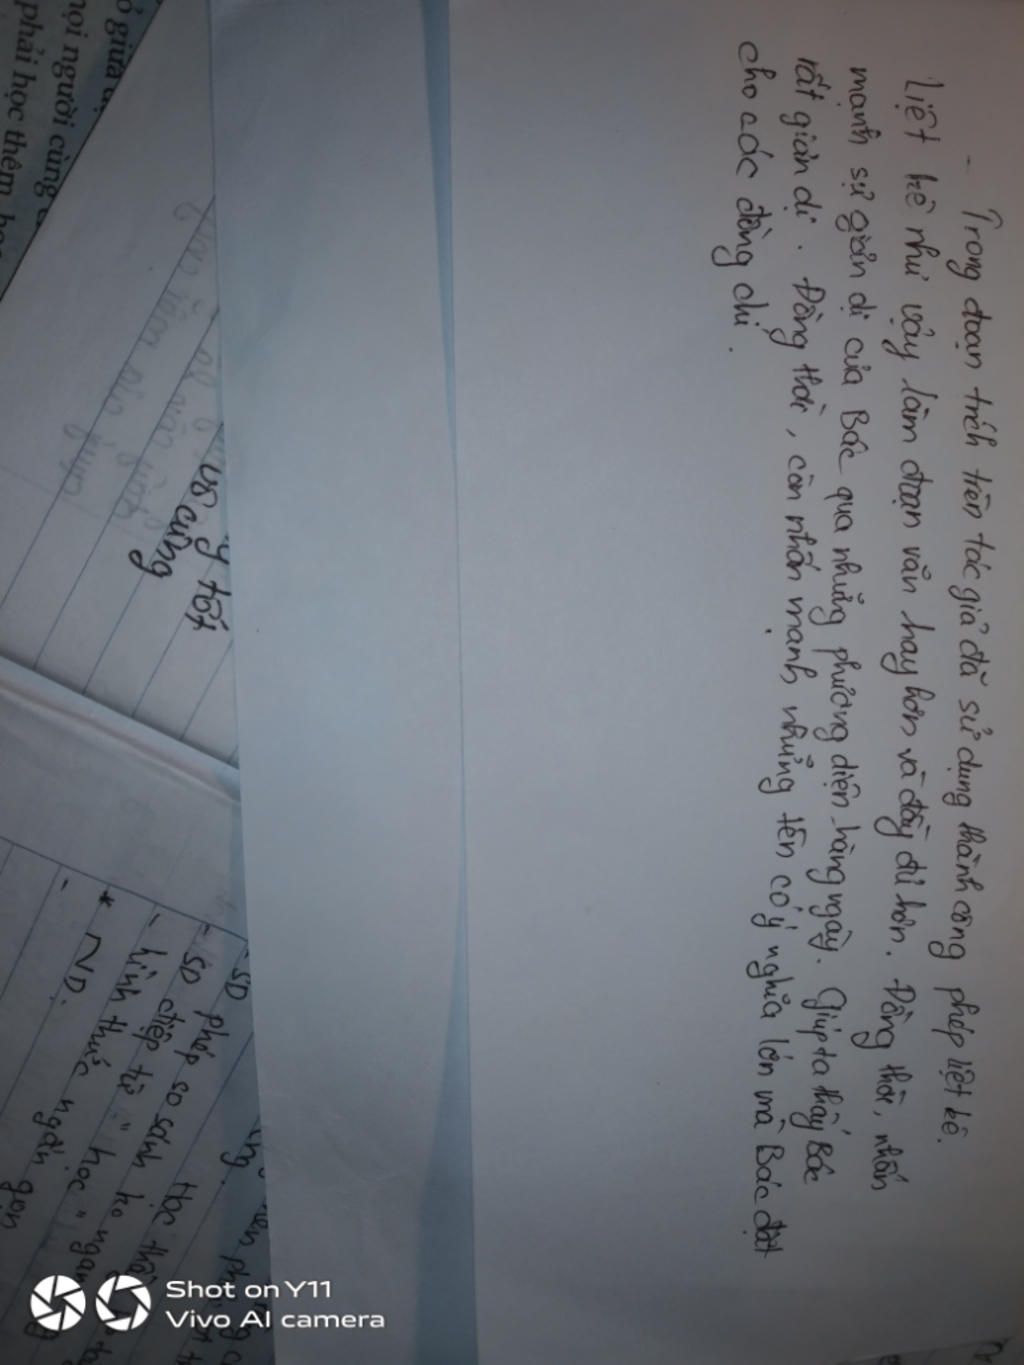 - Trong đoạn trích trên tác giả đã sử dụng thành công phép liệt kê.
Liệt kê như vậy làm đoạn văn hay hơn và đầy đủ hơn. Đồng thời, nhấn
mạnh sự giản dị của Bác qua những phương diện hàng ngày. Giúp ta thấy Bác
rất giản dị. Đồng thời, còn nhấn mạnh những tên có ý nghĩa lớn mà Bác đặt
cho các đồng chí.
ọi người cùng
phải học thêm
y tốt
vô cùng
- SD
- SD phép so sánh
- điệp từ "học"
hình thức ngắn gọn
* ND:
-
Shot on Y11
Vivo AI camera